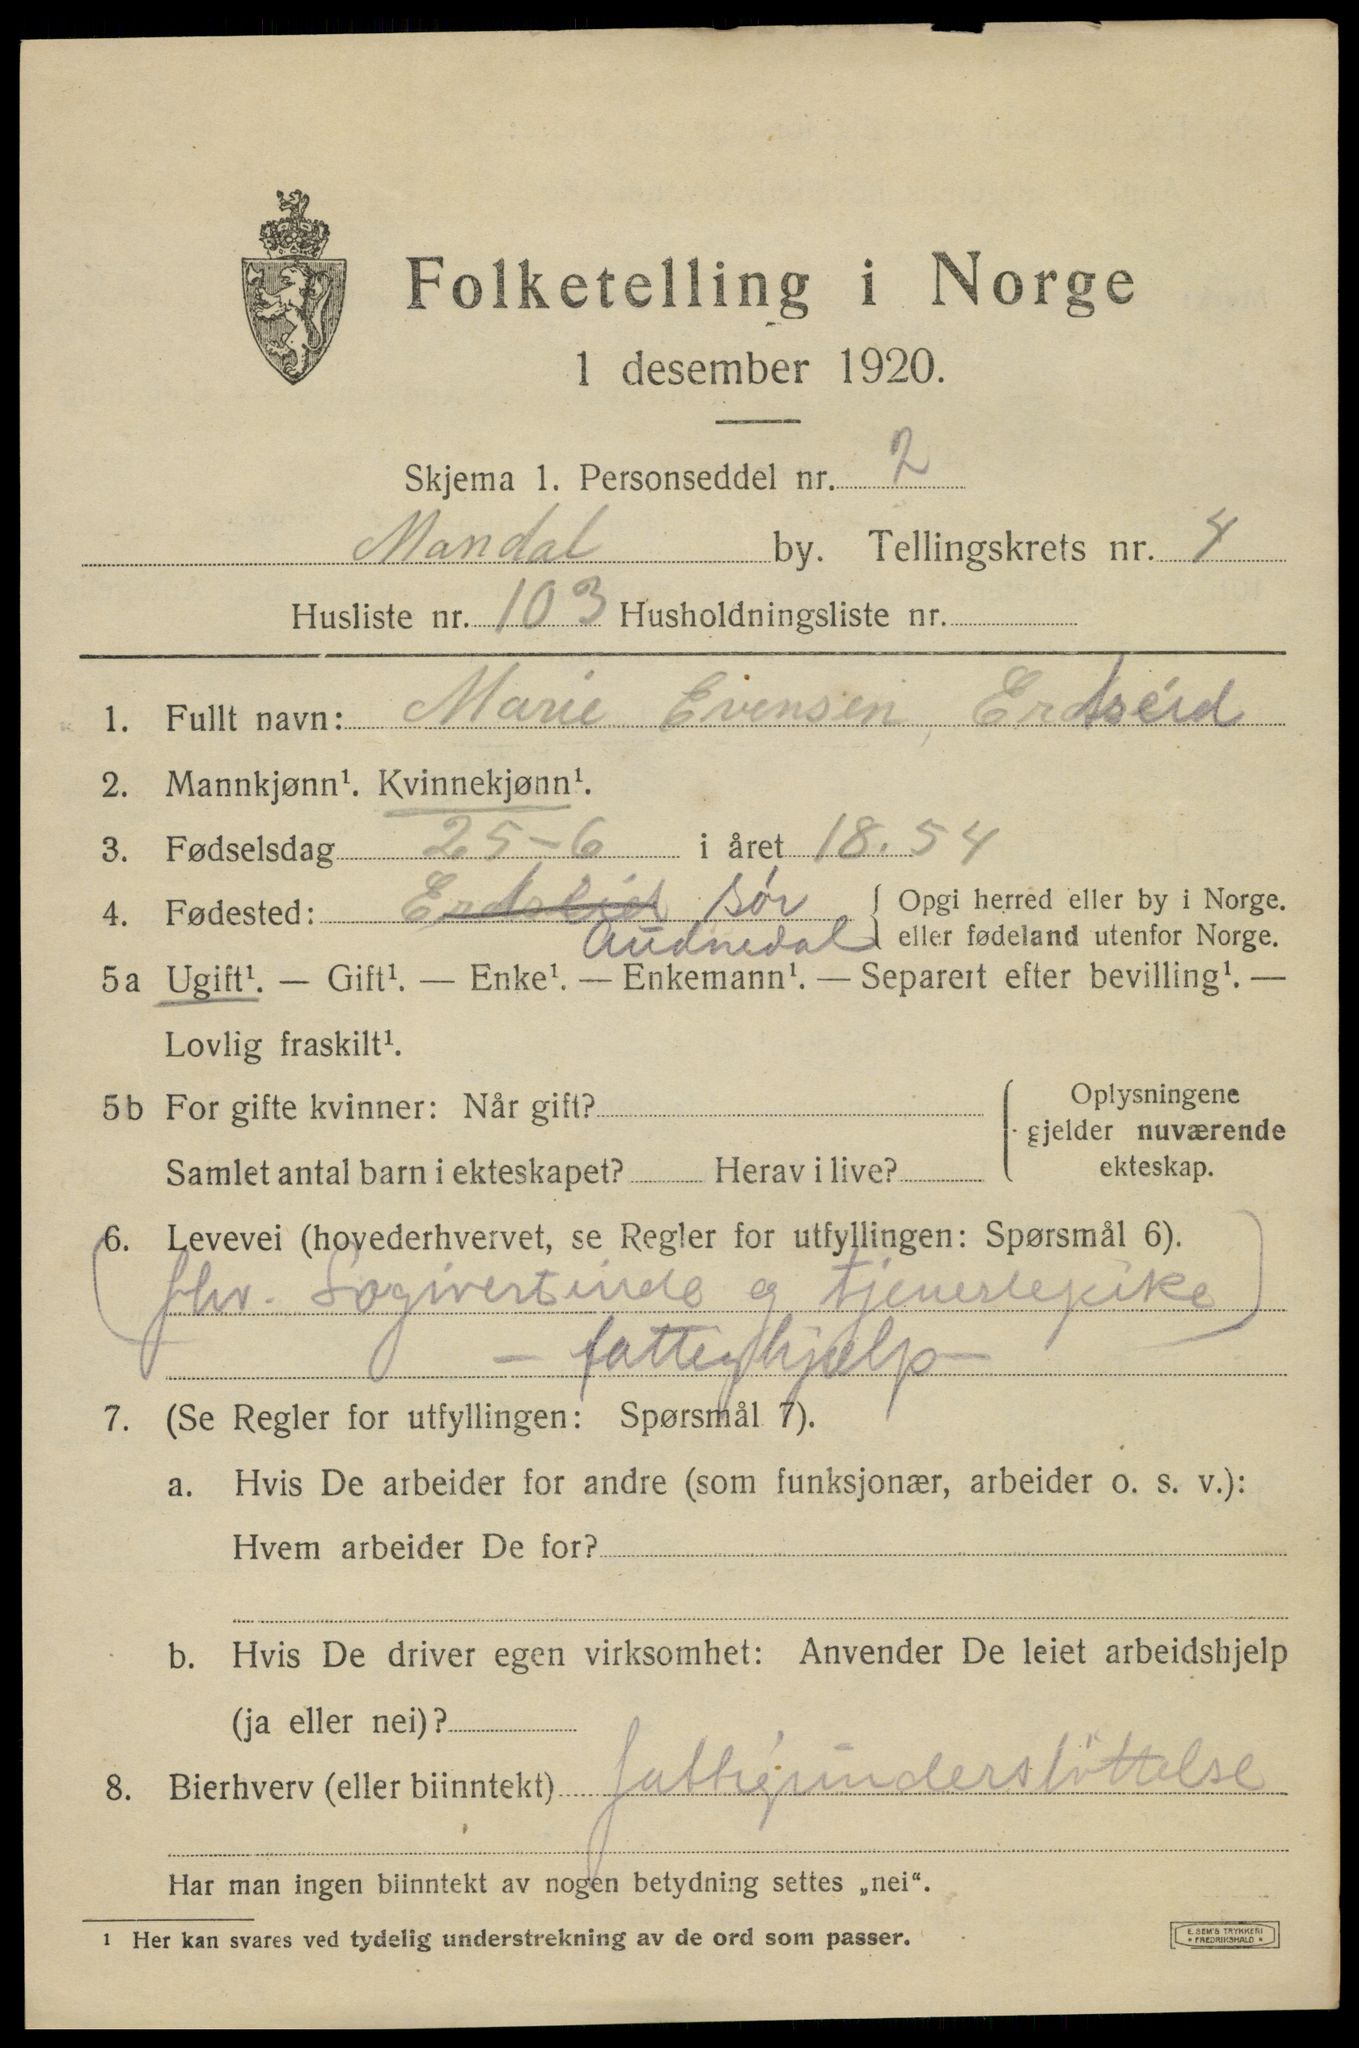 Folketelling i Norge
1 desember 1920.
Skjema 1. Personseddel nr. 2
Mandal by. Tellingskrets nr. 4
Husliste nr. 103 Husholdningsliste nr.
1. Fullt navn: Marie Evensen, Erdseid
2. Mannkjønn¹. Kvinnekjønn¹.
3. Fødselsdag 25-6 i året 18.54
4. Fødested: Erdseid Sör { Opgi herred eller by i Norge.
Audnedal eller fødeland utenfor Norge.
5a Ugift¹. — Gift¹. — Enke¹. — Enkemann¹. — Separert efter bevilling¹. —
Lovlig fraskilt¹.
5b For gifte kvinner: Når gift? Oplysningene
gjelder nuværende
Samlet antal barn i ekteskapet? Herav i live? ekteskap.
6. Levevei (hovederhvervet, se Regler for utfyllingen: Spørsmål 6).
(fhv. Logivertinde og tjenestepike)
- fattighjelp -
7. (Se Regler for utfyllingen: Spørsmål 7).
a. Hvis De arbeider for andre (som funksjonær, arbeider o. s. v.):
Hvem arbeider De for?
b. Hvis De driver egen virksomhet: Anvender De leiet arbeidshjelp
(ja eller nei)?
8. Bierhverv (eller biinntekt) fattigunderstöttelse
Har man ingen biinntekt av nogen betydning settes „nei“.
1 Her kan svares ved tydelig understrekning av de ord som passer.
E. SEM'S TRYKKERI
* FREDRIKSHALD *